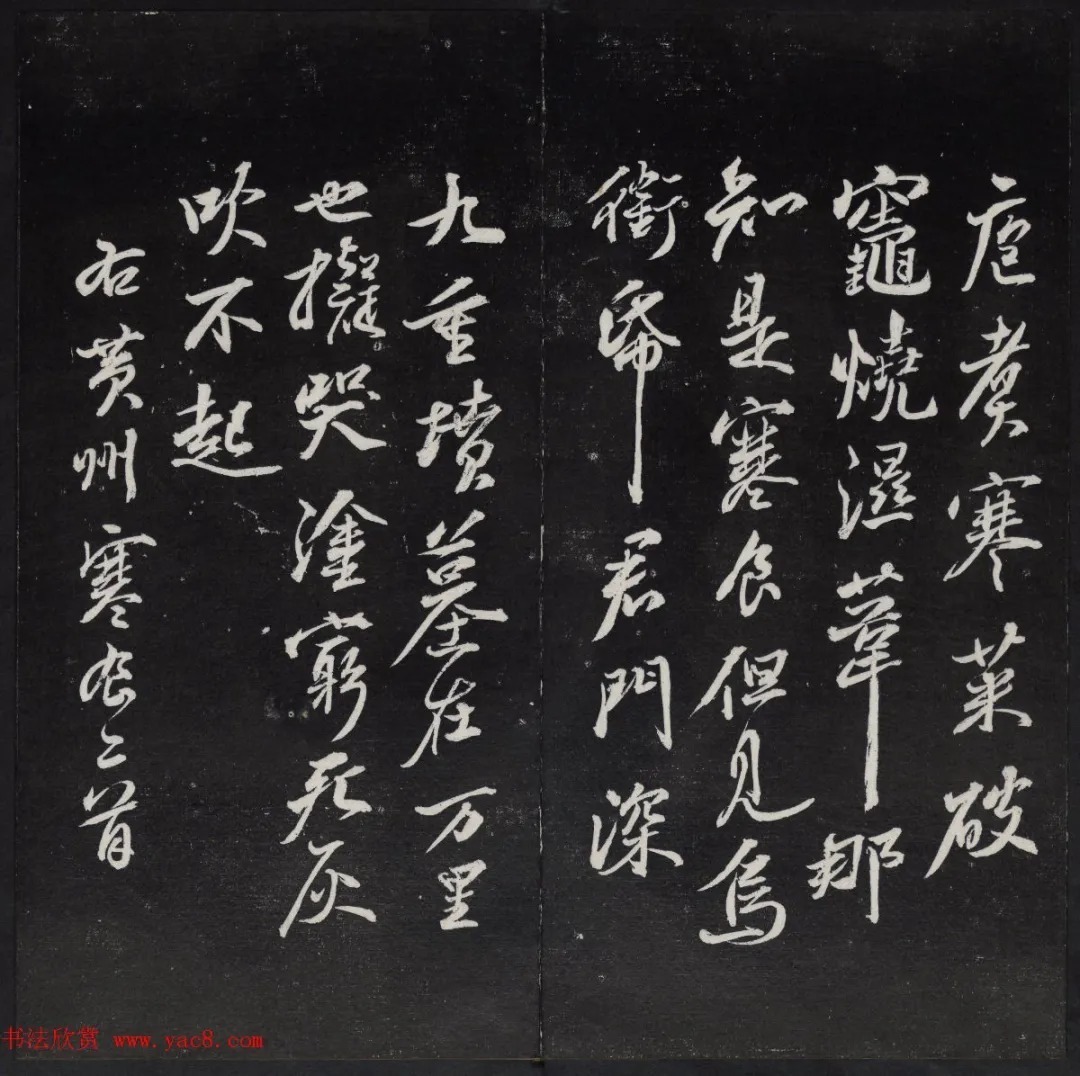 庖煮寒菜破
竈燒濕葦那
知是寒食但見烏
銜帋君門深
九重墳墓在万里
也擬哭塗窮死灰
吹不起
右黃州寒食二首
书法欣赏 www.yac8.com